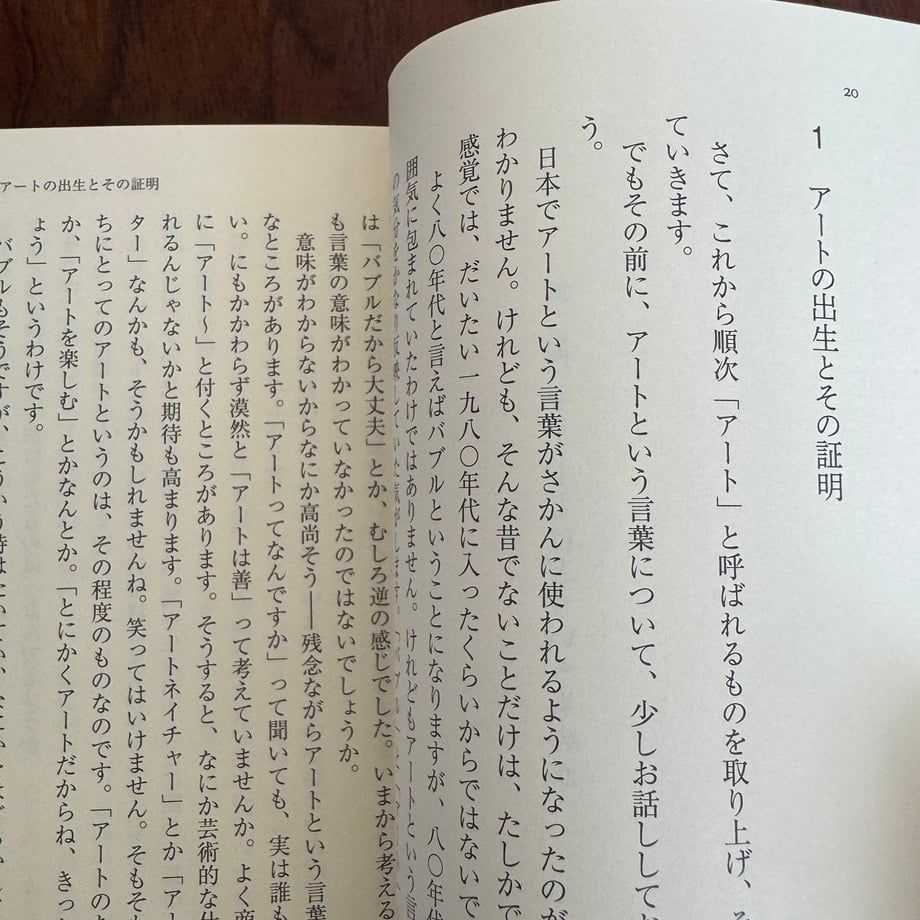 20
1 アートの出生とその証明
さて、これから順次「アート」と呼ばれるものを取り上げ、そ
ていきます。
でもその前に、アートという言葉について、少しお話ししてお
う。
日本でアートという言葉がさかんに使われるようになったのが
わかりません。けれども、そんな昔でないことだけは、たしかで
感覚では、だいたい一九八〇年代に入ったくらいからではないで
よく八〇年代と言えばバブルということになりますが、八〇年代
囲気に包まれていたわけではありません。けれどもアートという言
アートの出生とその証明
は「バブルだから大丈夫」とか、むしろ逆の感じでした。いまから考える
も言葉の意味がわかっていなかったのではないでしょうか。
意味がわからないからなにか高尚そう――残念ながらアートという言葉
なところがあります。「アートってなんですか」って聞いても、実は誰も
い。にもかかわらず漠然と「アートは善」って考えていませんか。よく商
に「アート〜」と付くところがあります。そうすると、なにか芸術的な仕
れるんじゃないかと期待も高まります。「アートネイチャー」とか「ア
ター」なんかも、そうかもしれませんね。笑ってはいけません。そもそ
ちにとってのアートというのは、その程度のものなのです。「アートの
か、「アートを楽しむ」とかなんとか。「とにかくアートだからね、きっ
ょう」というわけです。